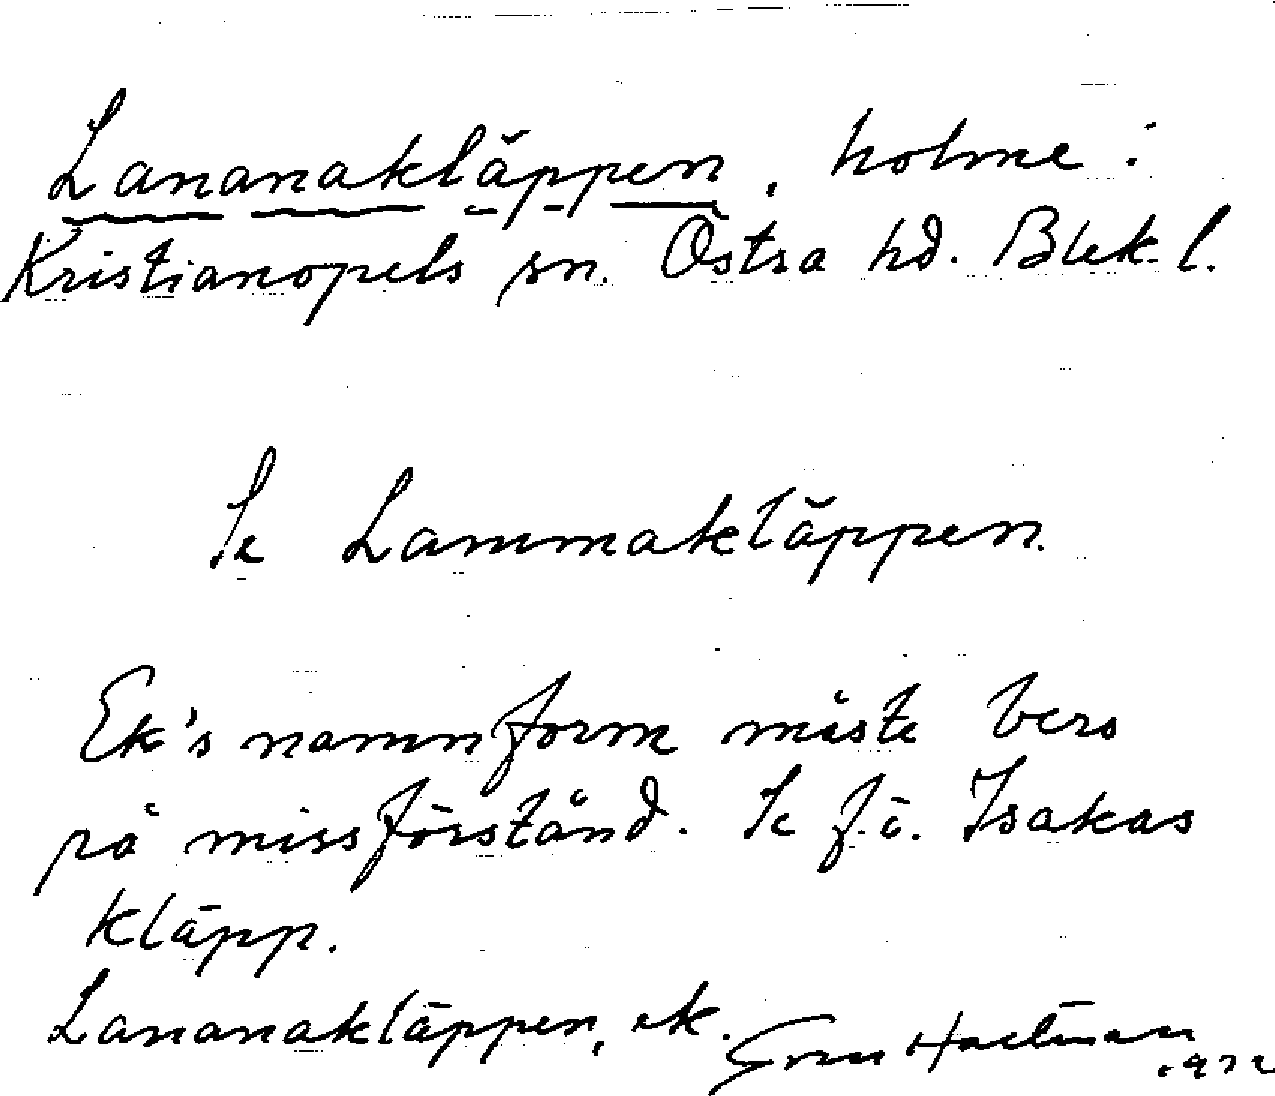 Lananakläppen, holme i
Kristianopels sn. Östra hd. Blek. l.
Se Lammakläppen.
Ek's namnform måste bero
på missförstånd. Se f.ö. Isakas
kläpp.
Lananakläppen, ek. Sven Hallman
1972